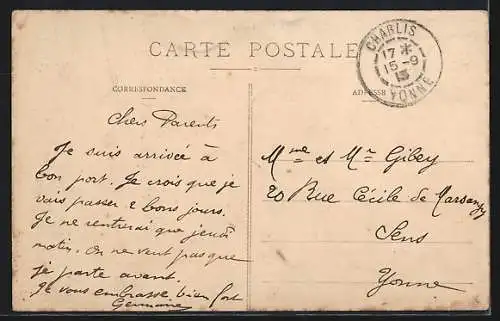 CARTE POSTALE
CORRESPONDANCE
Chers Parents
Je suis arrivée à
bon port. Je crois que je
vais passer 2 bons jours.
Je ne rentrerai que jeudi
matin. On ne veut pas que
je parte avant.
Je vous embrasse bien fort
Germaine
CHABLIS
17 *
15 -9
13
YONNE
ADRESSE
Mme et Mr Gibey
20 Rue Cécile de Marsangy
Sens
Yonne